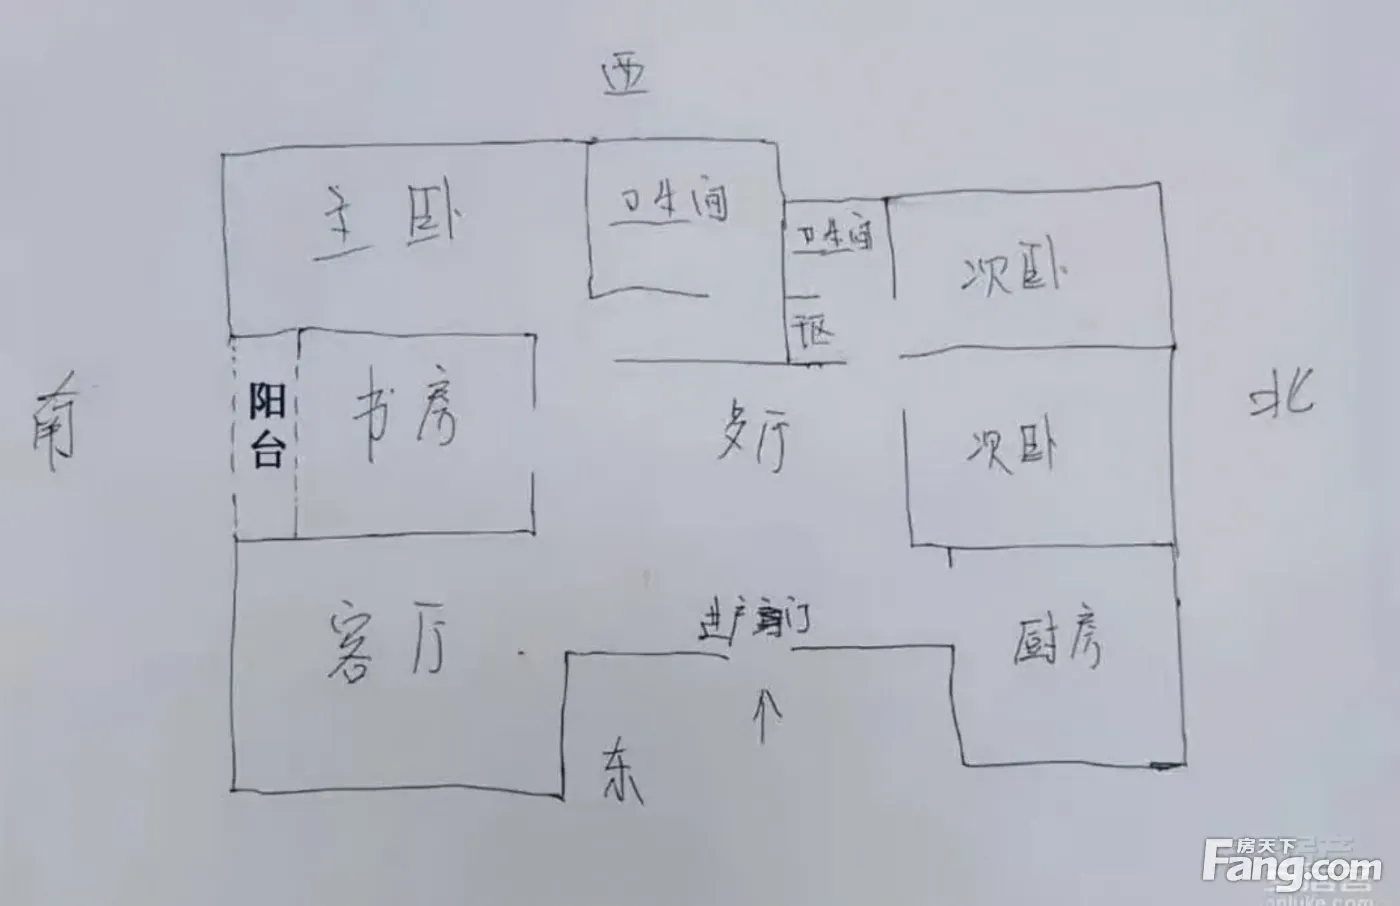 西
主卧
卫生间
卫生间
次卧
南
阳台
书房
多厅
次卧
北
客厅
进户门
厨房
东
房天下
Fang.com
anjuke.com